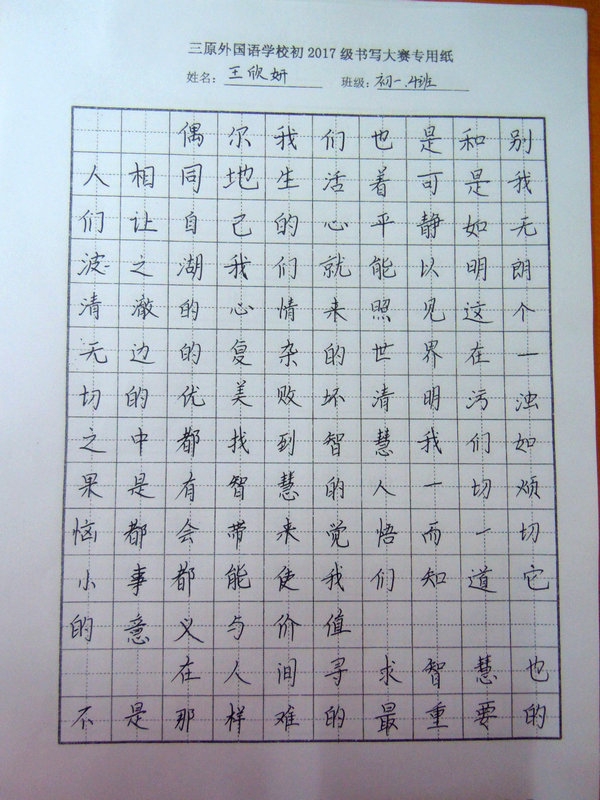 三原外国语学校初2017级书写大赛专用纸
姓名：王欣妍 班级：初一.4班
偶尔我们也是和别
人相同地生活着可是我
们让自己的心平静如无
波之湖我们就能以明朗
清澈的心情来照见这个
无边的复杂的世界在一
切的优美败坏清明污浊
之中都找到智慧我们如
果是有智慧的人一切烦
恼都会带来觉悟而一切
小事都能使我们知道它
的意义与价值
在人间寻求智慧也
不是那样难的最重要的